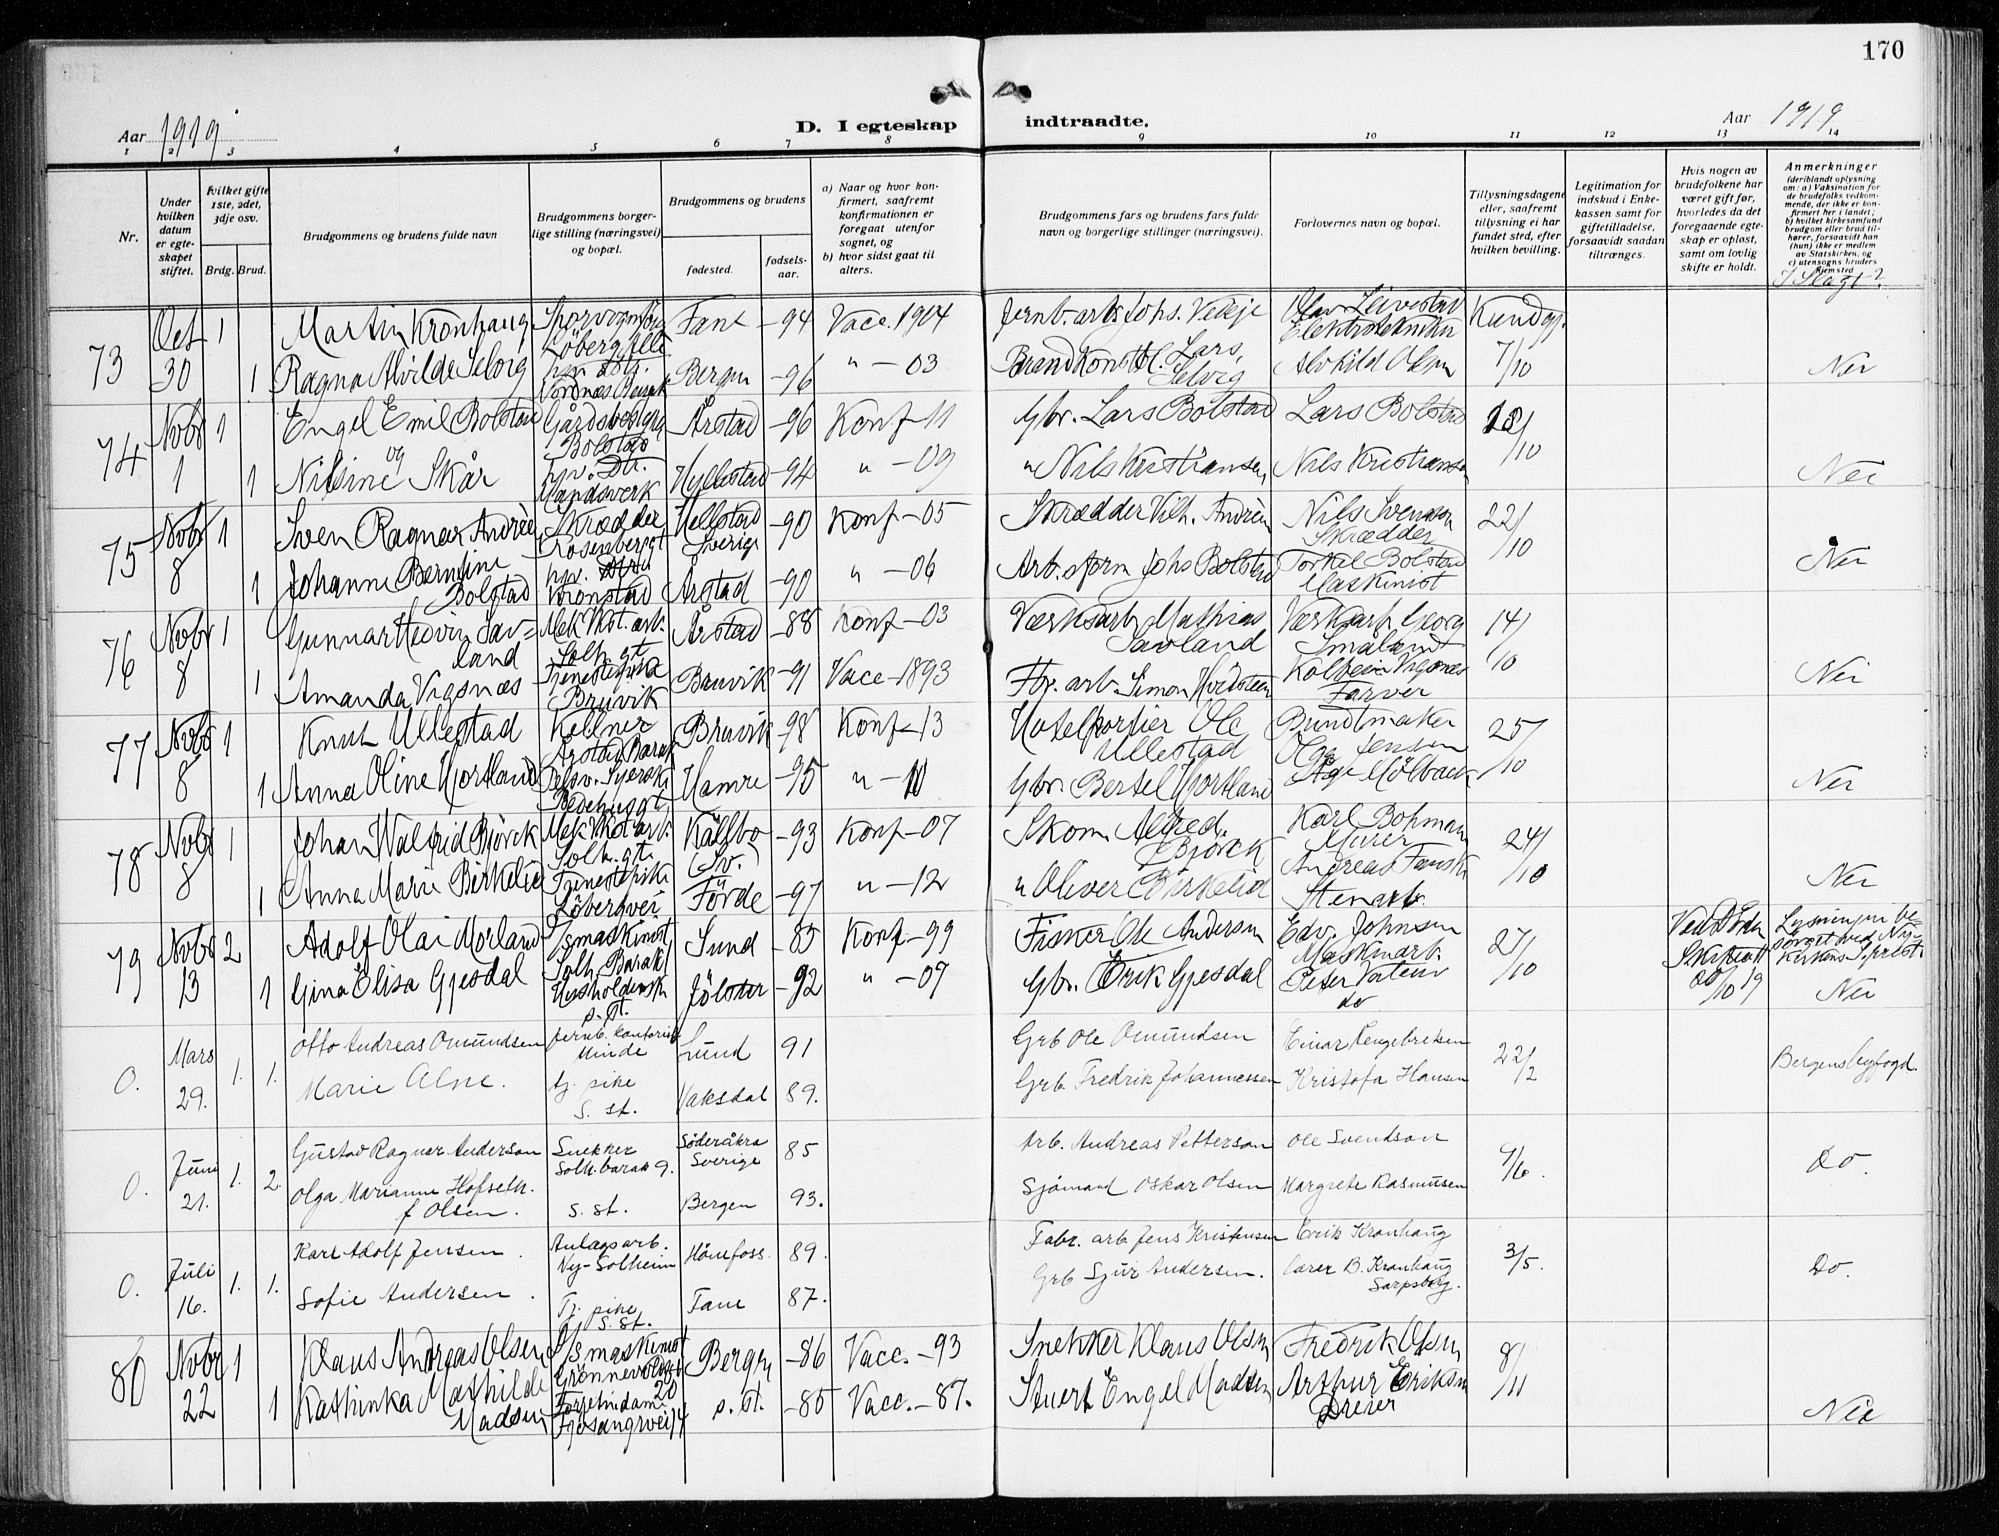 170
Aar 1919
D. I egteskap indtraadte.
Aar 1919
1 2 3 4 5 6 7 8 9 10 11 12 13 14
Nr.
Under hvilken datum er egteskapet stiftet.
Hvilket gifte 1ste, 2det, 3dje osv.
Brdg. Brud.
Brudgommens og brudens fulde navn
Brudgommens borgerlige stilling (næringsvei) og bopæl.
Brudgommens og brudens
fødested.
fødselsaar.
a) Naar og hvor konfirmert, saafremt konfirmationen er foregaat utenfor sognet, og
b) hvor sidst gaat til alters.
Brudgommens fars og brudens fars fulde navn og borgerlige stillinger (næringsvei).
Forlovernes navn og bopæl.
Tillysningsdagene eller, saafremt tillysning ei har fundet sted, efter hvilken bevilling.
Legitimation for indskud i Enkekassen samt for giftetilladelse, forsaavidt saadan tiltrænges.
Hvis nogen av brudefolkene har været gift før, hvorledes da det foregaaende egteskap er opløst, samt om lovlig skifte er holdt.
Anmerkninger (deriblandt oplysning om: a) Vaksination for de brudefolks vedkommende, der ikke er konfirmert her i landet; b) hvilket kirkesamfund brudgom eller brud tilhører, forsaavidt han (hun) ikke er medlem av Statskirken, og c) utensogns bruders hjemsted
I Slægt?
73 Oct 30 1 Martin Kronhaug Fane -94 Vacc. 1904 Jernb. arb. Johs. Olav Leivestad Elektrotekniker Kundgj. 7/10
1 Ragna Alvilde Selvig Bergen -96 " -03 Brandkonst. Lars Selvig Alvhild Olsen Nei
74 Nvbr 1 1 Engel Emil Bolstad Bolstad Årstad -96 Konf -11 Gbr. Lars Bolstad Lars Bolstad 18/10
og
1 Nilsine Skår Hyllestad -94 " -09 " Nils Kristiansen Nils Kristiansen Nei
75 Nvbr 8 1 Sven Ragnar Andrèe Skrædder Rosenbergst Sverige -90 Konf -05 Skrædder Vilh. Andrèe Nils Svenson Skrædder 22/10
1 Johanne Berntine Bolstad Kronstad Årstad -90 " -06 Arb. Johs Bolstad Torkel Bolstad Maskinist Nei
76 Nvbr 8 1 Gunnar Hedvin Savland Mek Vkst. arb. Solh. gt. Årstad -88 Konf -03 Værksarb Mathias Savland Værk arb. Georg Småland 14/10
1 Amanda Vigsnæs Tjenestepike Bruvik Bruvik -91 Vacc -1893 Fbr. arb. Simon Kolbein Vigsnes Farver Nei
77 Nvbr 8 1 Knut Ullestad Kelner Årstad Barak Bruvik -98 Konf -13 Hotelportier Ole Ullestad Bundtmaker Jensen 25/10
1 Anna Oline Hjortland Hamre -95 " -10 Gbr. Bertel Hjortland Åge Mölback Nei
78 Nvbr 8 1 Johan Walfrid Björck Mek Vkst arb. Solh. gt. Källbo (Sv.) -93 Konf -07 Skom. Alfred Björck Karl Bohman Murer 24/10
1 Anna Marie Birkelid Tjenestepike Löbergvei Förde -97 " -12 " Oliver Birkelid Andreas Stenarb. Nei
79 Nvbr 13 2 Adolf Olai Morland Maskinist Solh. Barak Sund -85 Konf -99 Fisker Ole Anderson Edv. Johnsen Maskinarb. 27/10 Ved Död Skiftatt 20/10 19 Lysningen besörget ved Nykirkens Sprest.
1 Gina Elisa Gjesdal s. st. Jölster -92 " -07 Gbr. Erik Gjesdal Peter do Nei
0. Mars 29. 1. 1. Otto Andreas Omundsen Jernb. kontorist Minde Lund 91 Grb Ole Omundsen Einar Lengebriksen 22/2 Bergens byfogd.
Marie Alne. tj. pike s. st. Vaksdal 89. Grb. Fredrik Johannessen Kristofa Hansen
0. Juni 21. 1. 2. Gustav Ragnar Anderson Snekker Solh. barak 9. Söderåkra Sverige 85 Arb. Andreas Petterson Ole Svendson 9/6. Do.
Olga Marianne Hofseth f Olsen. s. st. Bergen 93. Sjömand Oskar Olsen Margrete Rasmusen
0. Juli 16. 1. 1. Karl Adolf Jensen. Anlægsarb. Ny-Solheim Hönefoss. 89. Fabr. arb Jens Kristensen Erik Kronhaug 3/5. Do.
Sofie Andersen. Tj. pike s. st. Fane 87. Grb Sjur Andersen. B. Kronhaug Sarpsborg.
80 Nvbr 22 1 Klaus Andreas Olsen Maskinist 20 Bergen -86 Vacc. -93 Snekker Klaus Olsen Fredrik Olsen 8/11
1 Kathinka Mathilde Madsen Fjösangervei 4 s. st. -85 Vacc. -87. Stuert Engel Madsen Arthur Eriksen Dreier Nei